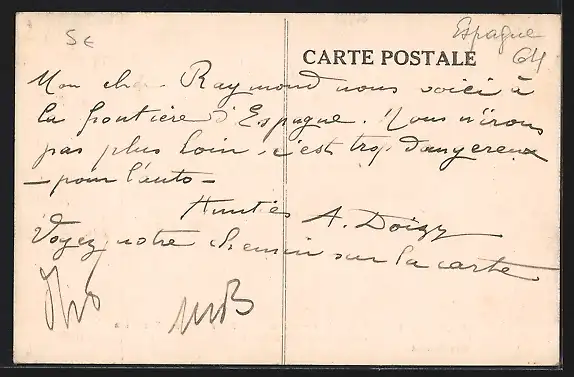 5€
Espagne
64
CARTE POSTALE
Mon cher Raymond nous voici à
la frontière d'Espagne. Nous n'irons
pas plus loin, c'est trop dangereux
– pour l'auto –
A. Doizy
Voyez notre chemin sur la carte